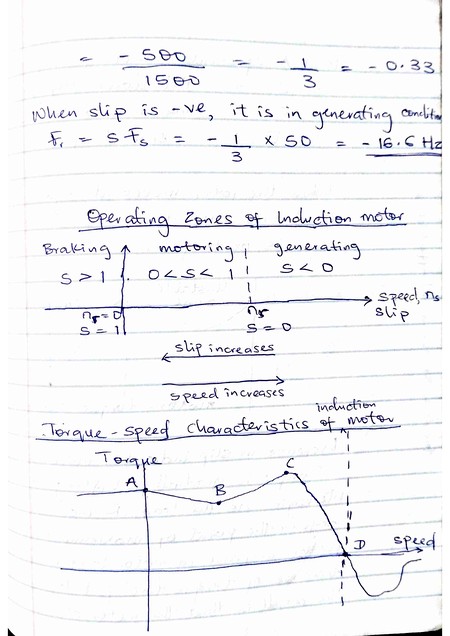 = -500/1500 = -1/3 = -0.33
When slip is -ve, it is in generating conditi
Fr = S Fs = -1/3 × 50 = -16.6 Hz
Operating Zones of Induction motor
Braking motoring generating
S > 1 0 < S < 1 S < 0
speed, ns
slip
nr = 0 ns
S = 1 S = 0
slip increases
speed increases
induction
Torque - speed characteristics of motor
Torque
A B C
D speed